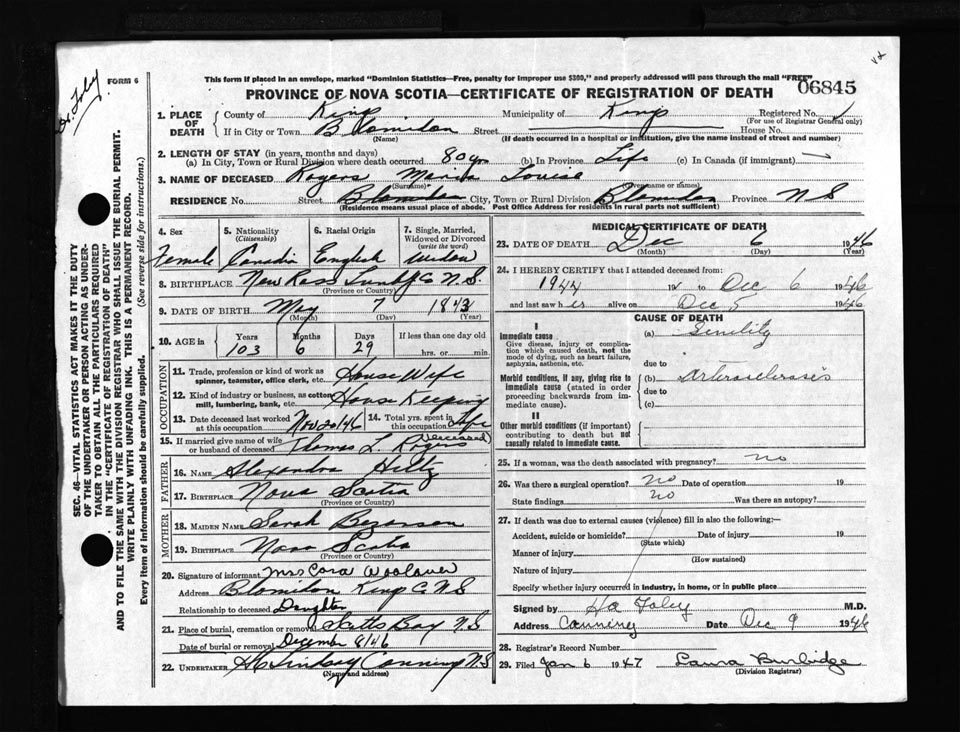 Dr. Foley
FORM 6
This form if placed in an envelope, marked "Dominion Statistics—Free, penalty for improper use $300," and properly addressed will pass through the mail "FREE"
PROVINCE OF NOVA SCOTIA—CERTIFICATE OF REGISTRATION OF DEATH
06845
1. PLACE OF DEATH
County of Kings Municipality of Kings Registered No.
(For use of Registrar General only)
If in City or Town Blomidon Street House No.
(Name) (If death occurred in a hospital or institution, give the name instead of street and number)
2. LENGTH OF STAY (in years, months and days)
(a) In City, Town or Rural Division where death occurred 80 yrs (b) In Province Life (c) In Canada (if immigrant)
3. NAME OF DECEASED Rogers Maria Louise
(Surname) (Given name or names)
RESIDENCE No. Street Blomidon City, Town or Rural Division Blomidon Province N S
(Residence means usual place of abode. Post Office Address for residents in rural parts not sufficient)
4. Sex
Female
5. Nationality
(Citizenship)
Canadian
6. Racial Origin
English
7. Single, Married, Widowed or Divorced
(write the word)
Widow
8. BIRTHPLACE New Ross Lunbg Co N.S.
(Province or Country)
9. DATE OF BIRTH May 7 1843
(Month) (Day) (Year)
10. AGE in
Years Months Days If less than one day
103 6 29 hrs. or min.
OCCUPATION
11. Trade, profession or kind of work as spinner, teamster, office clerk, etc. House Wife
12. Kind of industry or business, as cotton mill, lumbering, bank, etc. House Keeping
13. Date deceased last worked at this occupation Nov 20/46
14. Total yrs. spent in this occupation Life
15. If married give name of wife or husband of deceased Thomas L. Rogers (Deceased)
FATHER
16. NAME Alexandra Hiltz
17. BIRTHPLACE Nova Scotia
MOTHER
18. MAIDEN NAME Sarah Bezanson
19. BIRTHPLACE Nova Scotia
(Province or Country)
20. Signature of informant Mrs Cora Woolaver
Address Blomidon Kings Co N S
Relationship to deceased Daughter
21. Place of burial, cremation or removal Scotts Bay N.S
Date of burial or removal December 8/46
22. UNDERTAKER Lindsay Canning N.S
(Name and address)
MEDICAL CERTIFICATE OF DEATH
23. DATE OF DEATH Dec 6 1946
(Month) (Day) (Year)
24. I HEREBY CERTIFY that I attended deceased from:
1944 19 to Dec 6 1946
and last saw her alive on Dec 5 1946
CAUSE OF DEATH
I
Immediate cause
Give disease, injury or complication which caused death, not the mode of dying, such as heart failure, asphyxia, asthenia, etc.
(a) Senility
due to
Morbid conditions, if any, giving rise to immediate cause (stated in order proceeding backwards from immediate cause).
(b) Arterosclerosis
due to
(c)
II
Other morbid conditions (if important) contributing to death but not causally related to immediate cause.
25. If a woman, was the death associated with pregnancy? no
26. Was there a surgical operation? no Date of operation 19
State findings no Was there an autopsy?
27. If death was due to external causes (violence) fill in also the following:—
Accident, suicide or homicide? Date of injury 19
(State which)
Manner of injury
(How sustained)
Nature of injury
Specify whether injury occurred in industry, in home, or in public place
Signed by Foley M.D.
Address Canning Date Dec 9 1946
28. Registrar's Record Number
29. Filed Jan 6 1947 Laura Burbidge
(Division Registrar)
SEC. 46—VITAL STATISTICS ACT MAKES IT THE DUTY
OF THE UNDERTAKER OR PERSON ACTING AS UNDER-
TAKER TO OBTAIN ALL THE PARTICULARS REQUIRED
IN THE "CERTIFICATE OF REGISTRATION OF DEATH"
AND TO FILE THE SAME WITH THE DIVISION REGISTRAR WHO SHALL ISSUE THE BURIAL PERMIT.
WRITE PLAINLY WITH UNFADING INK. THIS IS A PERMANENT RECORD.
Every item of information should be carefully supplied. (See reverse side for instructions.)